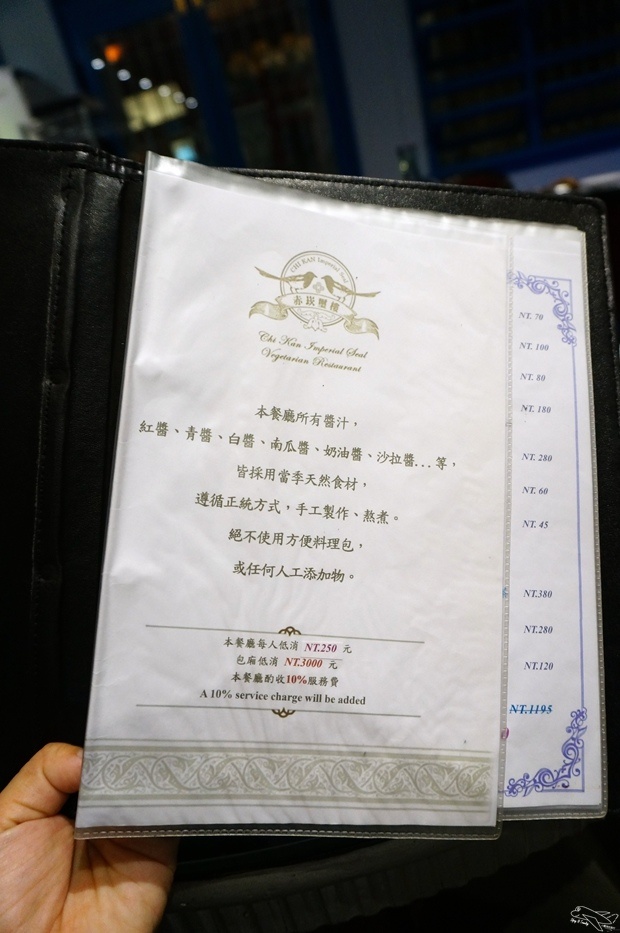 CHI KAN Imperial Seal
赤崁璽樓
Chi Kan Imperial Seal
Vegetarian Restaurant
本餐廳所有醬汁，
紅醬、青醬、白醬、南瓜醬、奶油醬、沙拉醬...等，
皆採用當季天然食材，
遵循正統方式，手工製作、熬煮。
絕不使用方便料理包，
或任何人工添加物。
本餐廳每人低消 NT.250 元
包廂低消 NT.3000 元
本餐廳酌收10%服務費
A 10% service charge will be added
NT. 70
NT. 100
NT. 80
NT. 180
NT. 280
NT. 60
NT. 45
NT.380
NT.280
NT.120
NT.1195